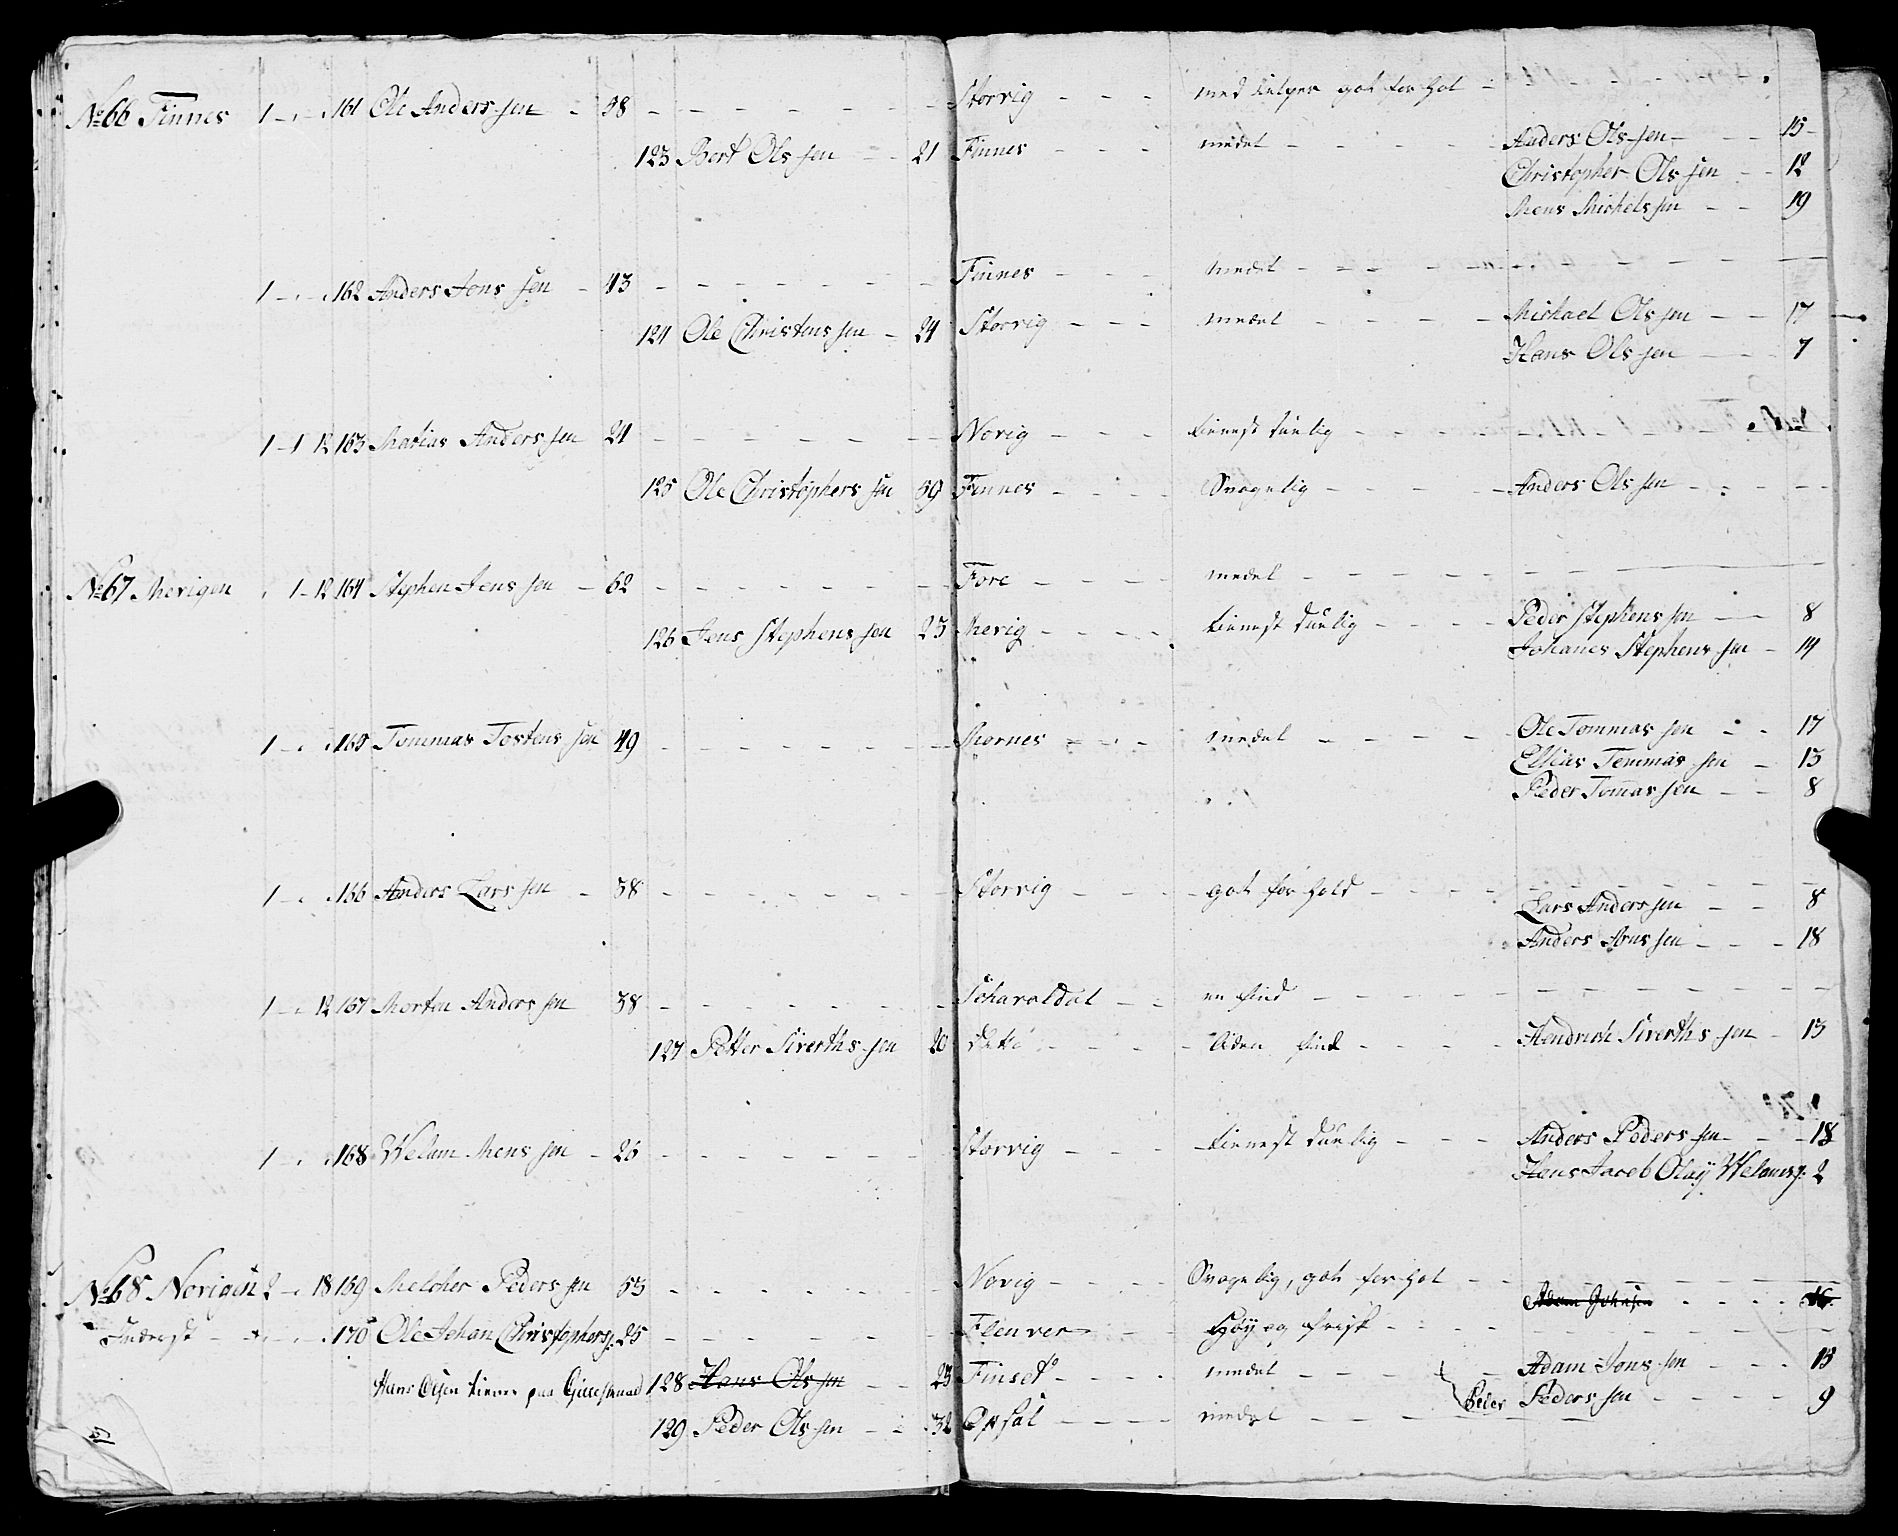 No 66 Finnes 1 - - 161 Ole Anders sen - 38 - - - Storvig - - - med helper got forhol -
123 Bert Ols sen - - 21 Finnes - - - medet - - - Anders Ols sen - - 15
Christopher Ols sen - - 12
Mens Michels sen - - 19
1 - - 162 Anders Jons sen - 43 - - - Finnes - - - medet - - -
124 Ole Christens sen - 24 Storvig - - - medet - - - Michael Ols sen - - 17
Hans Ols sen - - 7
1 - 1 12 163 Matias Anders sen 24 - - - Norig - - - tienest duelig - - -
125 Ole Christophers sen 39 Finnes - - - Svagelig - - - Anders Ols sen - - -
No 67 Merigen 1 - 12 164 Stephen Jens sen - 62 - - - Fore - - - medet - - -
126 Jens Stephens sen 23 Merig - - - tienest duelig - - - Peder Stephens sen - 8
Johanes Stephens sen - 14
1 - - 165 Tommas Tostens sen 49 - - - Mornes - - - medet - - - Ole Tommas sen - - 17
Ellias Temmas sen - 13
Peder Tomas sen - - 8
1 - - 166 Anders Lars sen - 38 - - - Storvig - - - got forhold - - -
Lars Anders sen - - 8
Anders Jons sen - - - 18
1 - - 12 167 Morten Anders sen 38 - - - Scharoldal - - en find - - -
127 Petter Siverths sen 20 dito - - - liden find - - - Hendrich Siverths sen - 13
1 - - 168 Welam Mens sen - 26 - - - Storvig - - - tienest duelig - - - Anders Peders sen - - 18
Hens Jacob Olay Welams: 2
No 68 Norigen 2 - 18 169 Melcher Peders sen 53 - - - Norig - - - Svagelig, got forhol - -
Adam Johnsen - - - 16
Inderst - - - 170 Ole Johan Christophers: 25 - - - Flenver - - - Høy og frisk - - -
Hans Olsen tiener paa Gillesstraad 128 Hans Ols sen - - 23 Finset - - - medet - - - Adam Jons sen - - - 13
129 Peder Ols sen - - 32 Opsal - - - medet - - - Peder Peders sen - - - 9